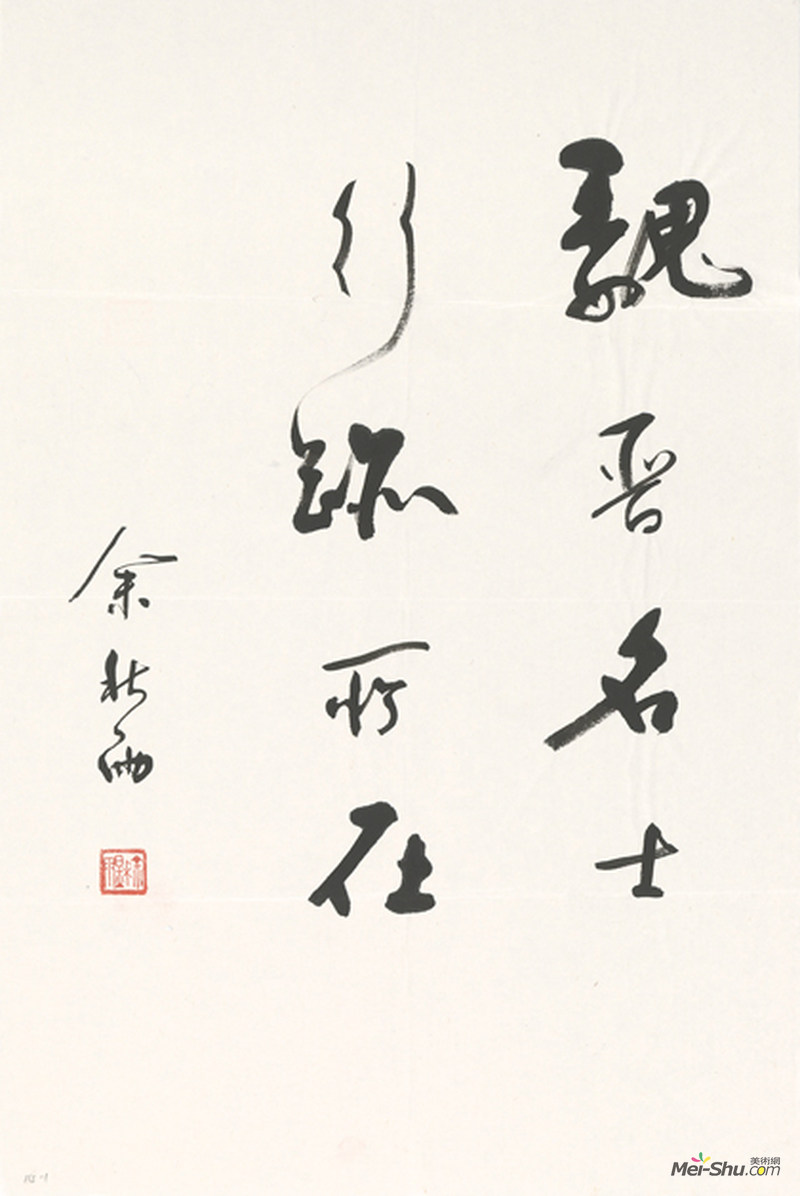 魏晋名士
行踪所在
余秋雨
美術網
Mei-Shu.com